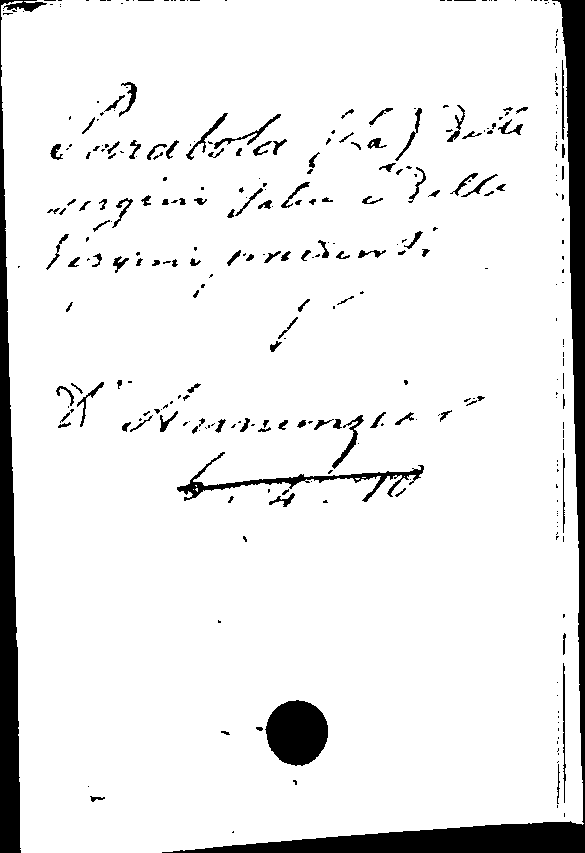 Parabola (La) delle
vergini fatue e della
vergini prudenti
D'Annunzio
6.4.10